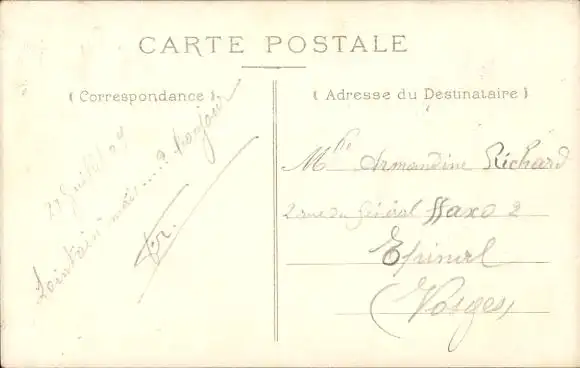 CARTE POSTALE
( Correspondance )
( Adresse du Destinataire )
27 Juillet 07
Lointain mais....? toujours
Mlle Armandine Richard
2 rue du Général Haxo 2
Epinal
(Vosges)